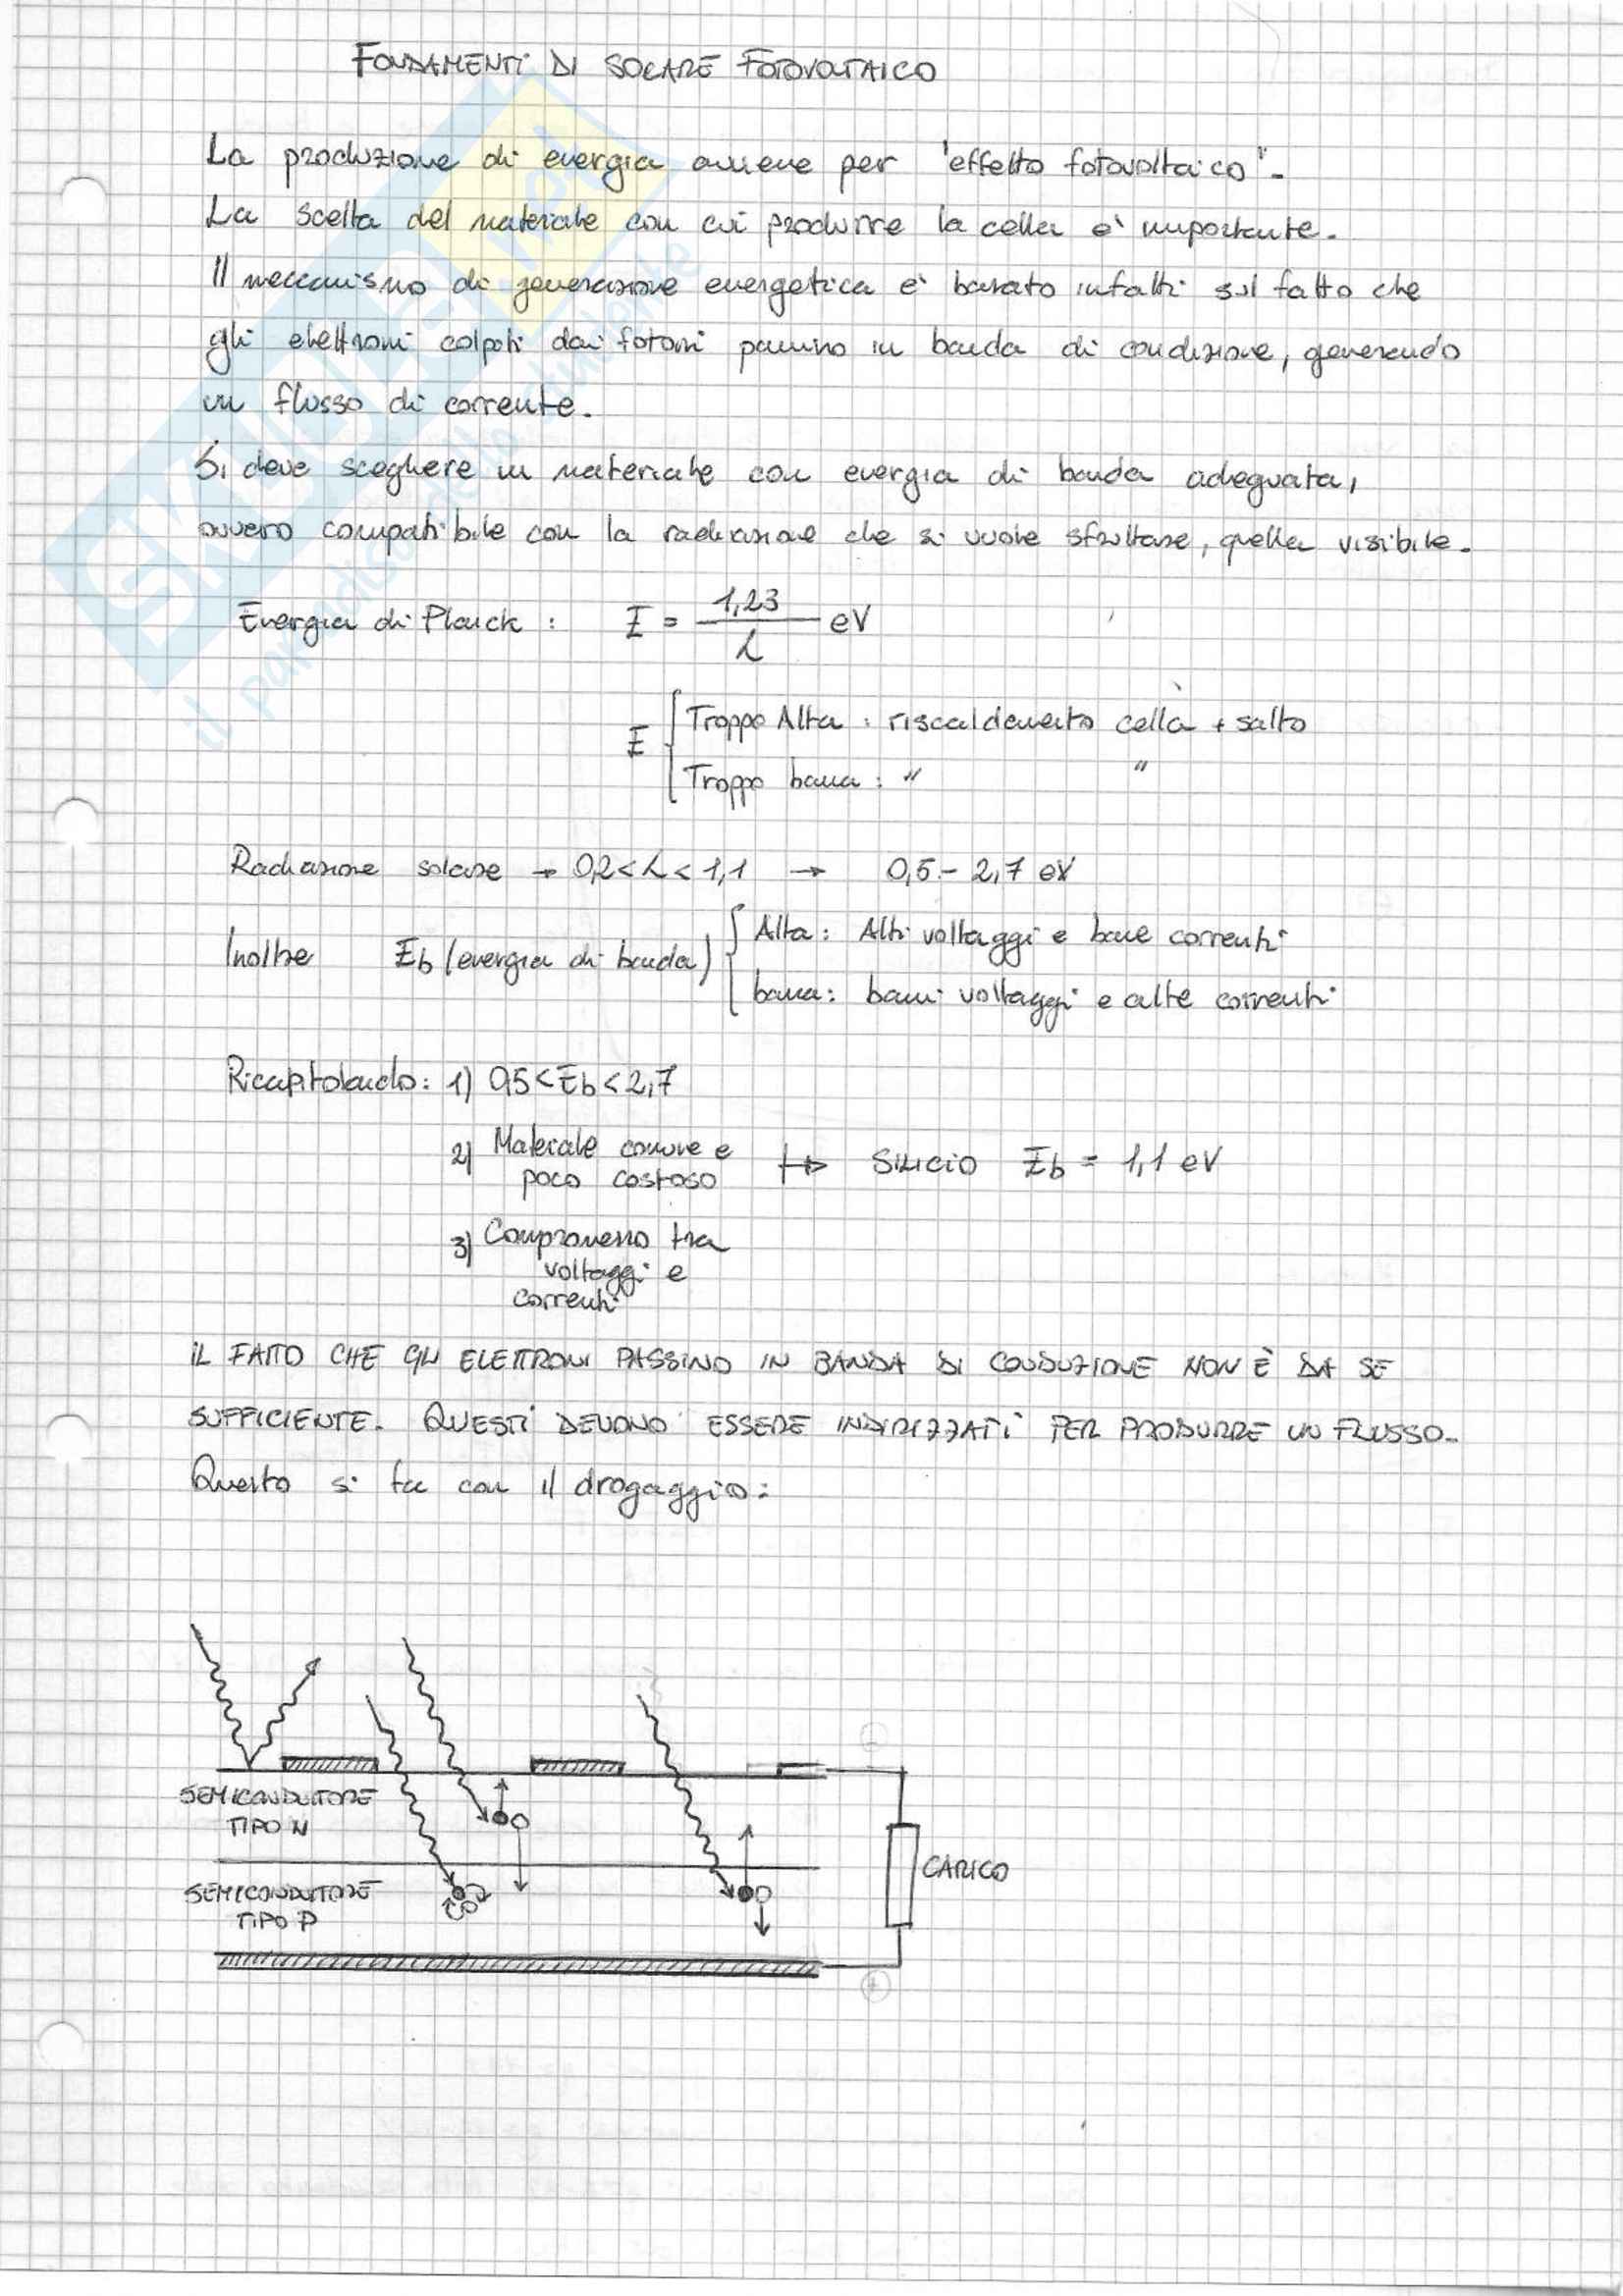 FONDAMENTI DI SOLARE FOTOVOLTAICO
La produzione di energia avviene per "effetto fotovoltaico".
La scelta del materiale con cui produrre la cella è importante.
Il meccanismo di generazione energetica è basato infatti sul fatto che
gli elettroni colpiti dai fotoni passino in banda di conduzione, generando
un flusso di corrente.
Si deve scegliere un materiale con energia di banda adeguata,
ovvero compatibile con la radiazione che si vuole sfruttare, quella visibile.
Energia di Planck : E = 1,23 / λ eV
E { Troppo Alta : riscaldamento cella + salto
Troppo bassa : " "
Radiazione solare → 0,2 < λ < 1,1 → 0,5 - 2,7 eV
Inoltre Eb (energia di banda) { Alta : Alti voltaggi e basse correnti
bassa : bassi voltaggi e alte correnti
Ricapitolando : 1) 0,5 < Eb < 2,7
2) Materiale comune e
poco costoso → SILICIO Eb = 1,1 eV
3) Compromesso tra
voltaggi e
correnti
IL FATTO CHE GLI ELETTRONI PASSINO IN BANDA DI CONDUZIONE NON È DA SE
SUFFICIENTE. QUESTI DEVONO ESSERE INDIRIZZATI PER PRODURRE UN FLUSSO.
Questo si fa con il drogaggio :
SEMICONDUTTORE
TIPO N
SEMICONDUTTORE
TIPO P
CARICO
-
+
SKUOLA.net
il paradiso dello studente